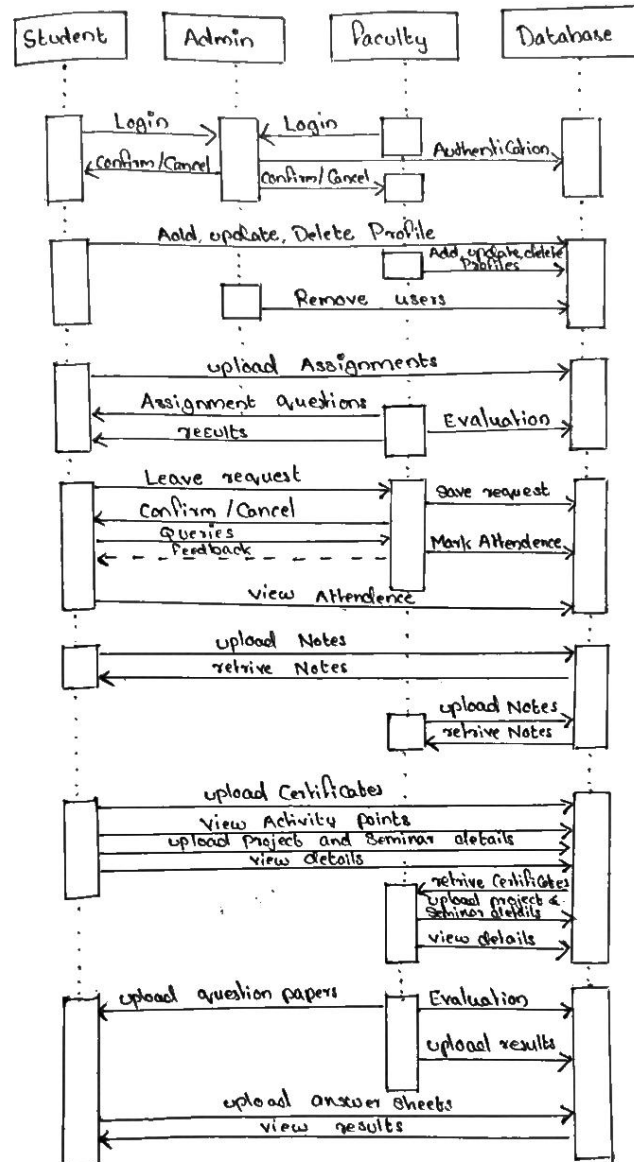 Student Admin Faculty Database
Login Login
Authentication
Confirm/Cancel Confirm/Cancel
Add, update, Delete Profile
Add, update, delete
Profiles
Remove users
upload Assignments
Assignment questions
Evaluation
results
Leave request
Save request
Confirm/Cancel
Queries
Mark Attendence
Feedback
view Attendence
upload Notes
retrive Notes
upload Notes
retrive Notes
upload Certificates
view Activity points
upload Project and Seminar details
view details
retrive Certificates
upload project &
Seminar details
view details
upload question papers Evaluation
upload results
upload answer sheets
view results